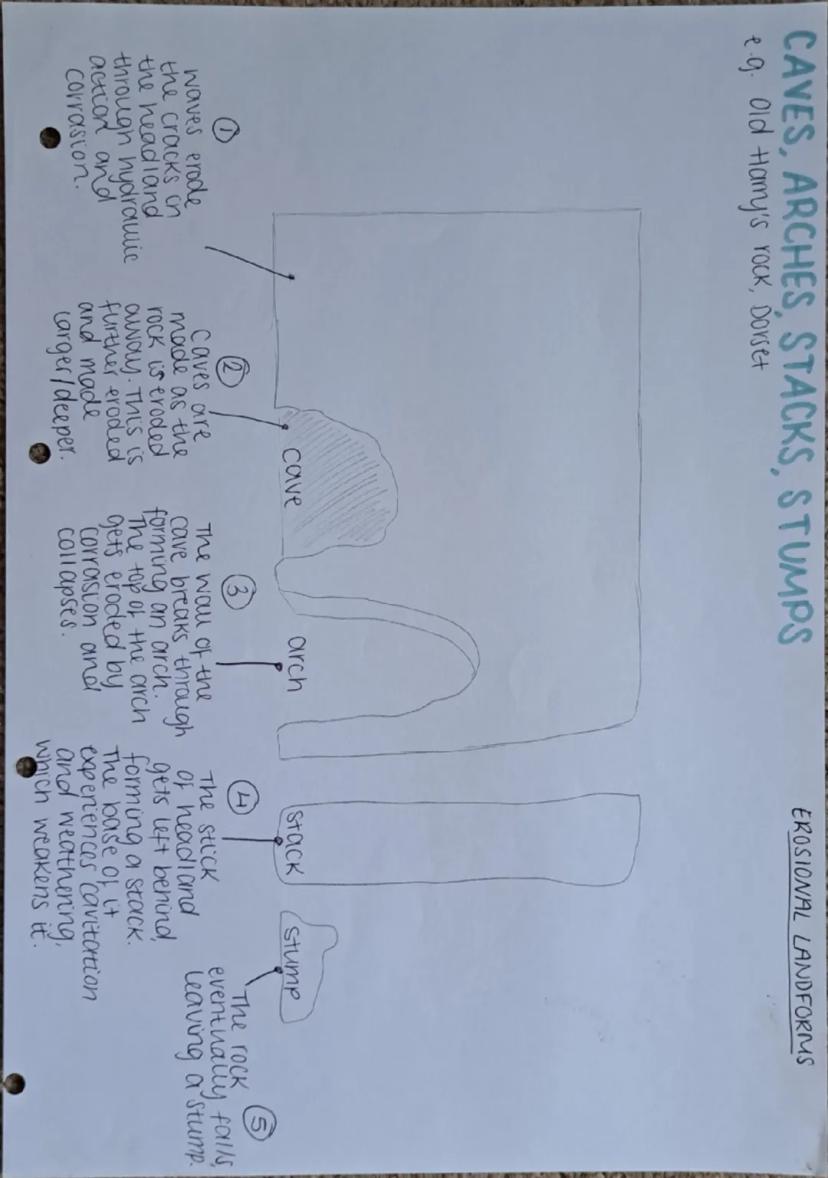 EROSIONAL LANDFORMS
CAVES, ARCHES, STACKS, STUMPS
e.g. Old Harry's rock, Dorset
cave
arch
stack
stump
1
waves erode
the cracks in
the headland
through hydraulic
action and
corrasion.
2
Caves are
made as the
rock is eroded
away. This is
further eroded
and made
larger/deeper.
3
The wall of the
cave breaks through
forming an arch.
The top of the arch
gets eroded by
corrasion and
collapses.
4
The stick
of headland
gets left behind,
forming a stack.
The base of it
experiences cavitation
and weathering,
which weakens it.
5
The rock
eventually falls,
leaving a stump.